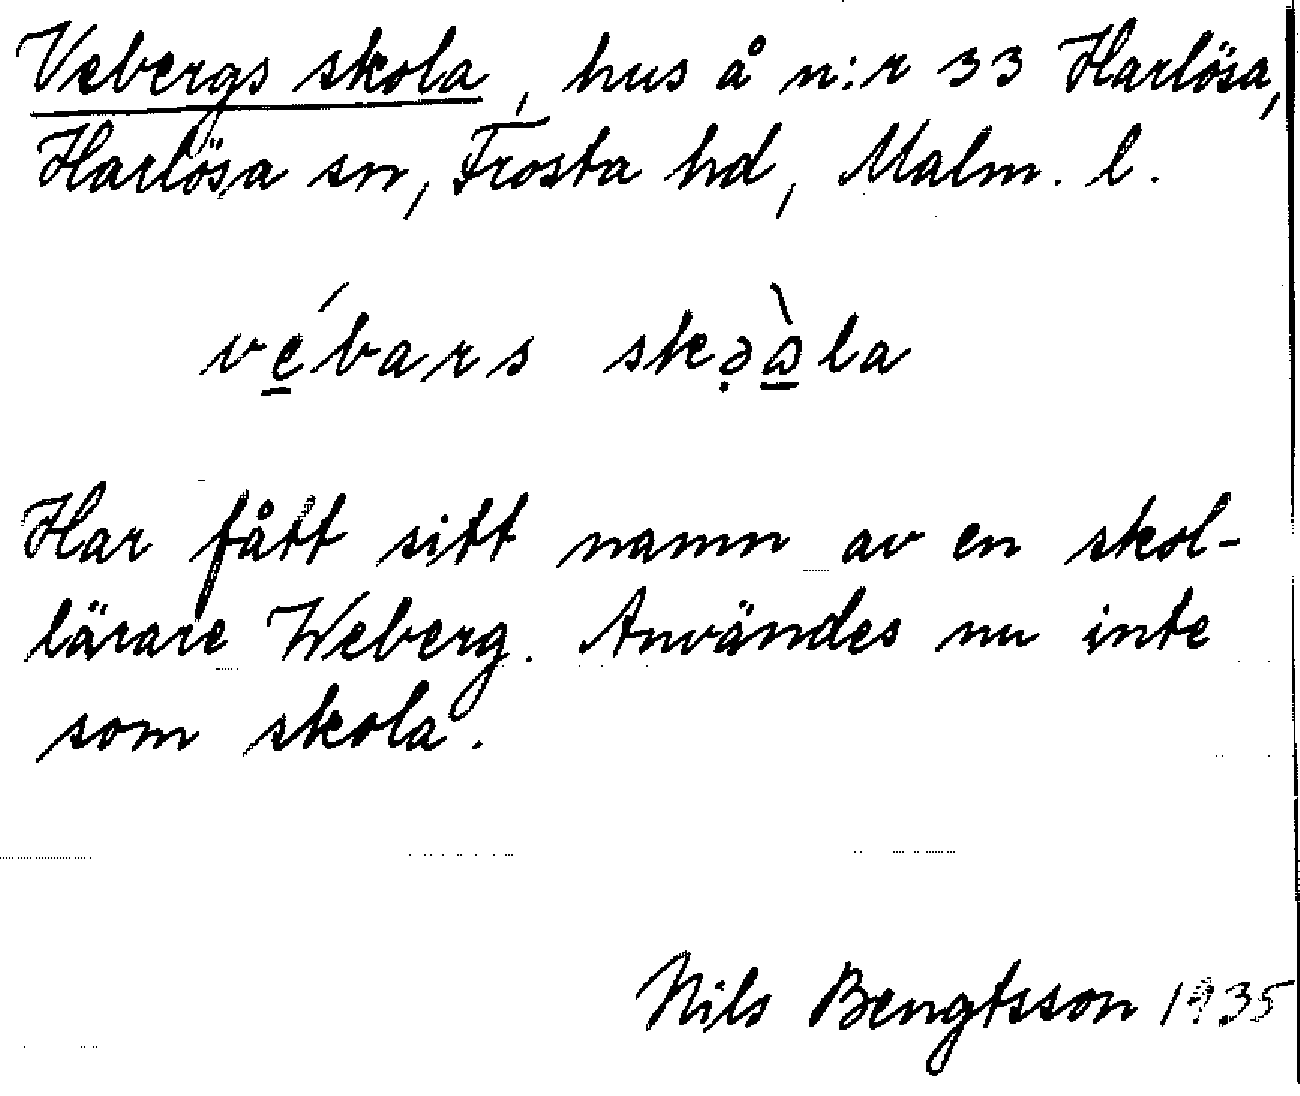 Vebergs skola, hus å n:r 33 Harlösa,
Harlösa sn, Frosta hd, Malm. l.
vé̱bars skə̣ὰ̱la
Har fått sitt namn av en skol-
lärare Weberg. Användes nu inte
som skola.
Nils Bengtsson 1935